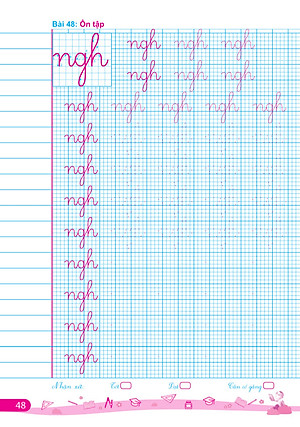 Bài 48: Ôn tập
ngh ngh ngh ngh
ngh ngh ngh
ngh ngh ngh ngh ngh
ngh
ngh
ngh
ngh
ngh
ngh
ngh
ngh
Nhận xét: Tốt Đạt Cần cố gắng
48